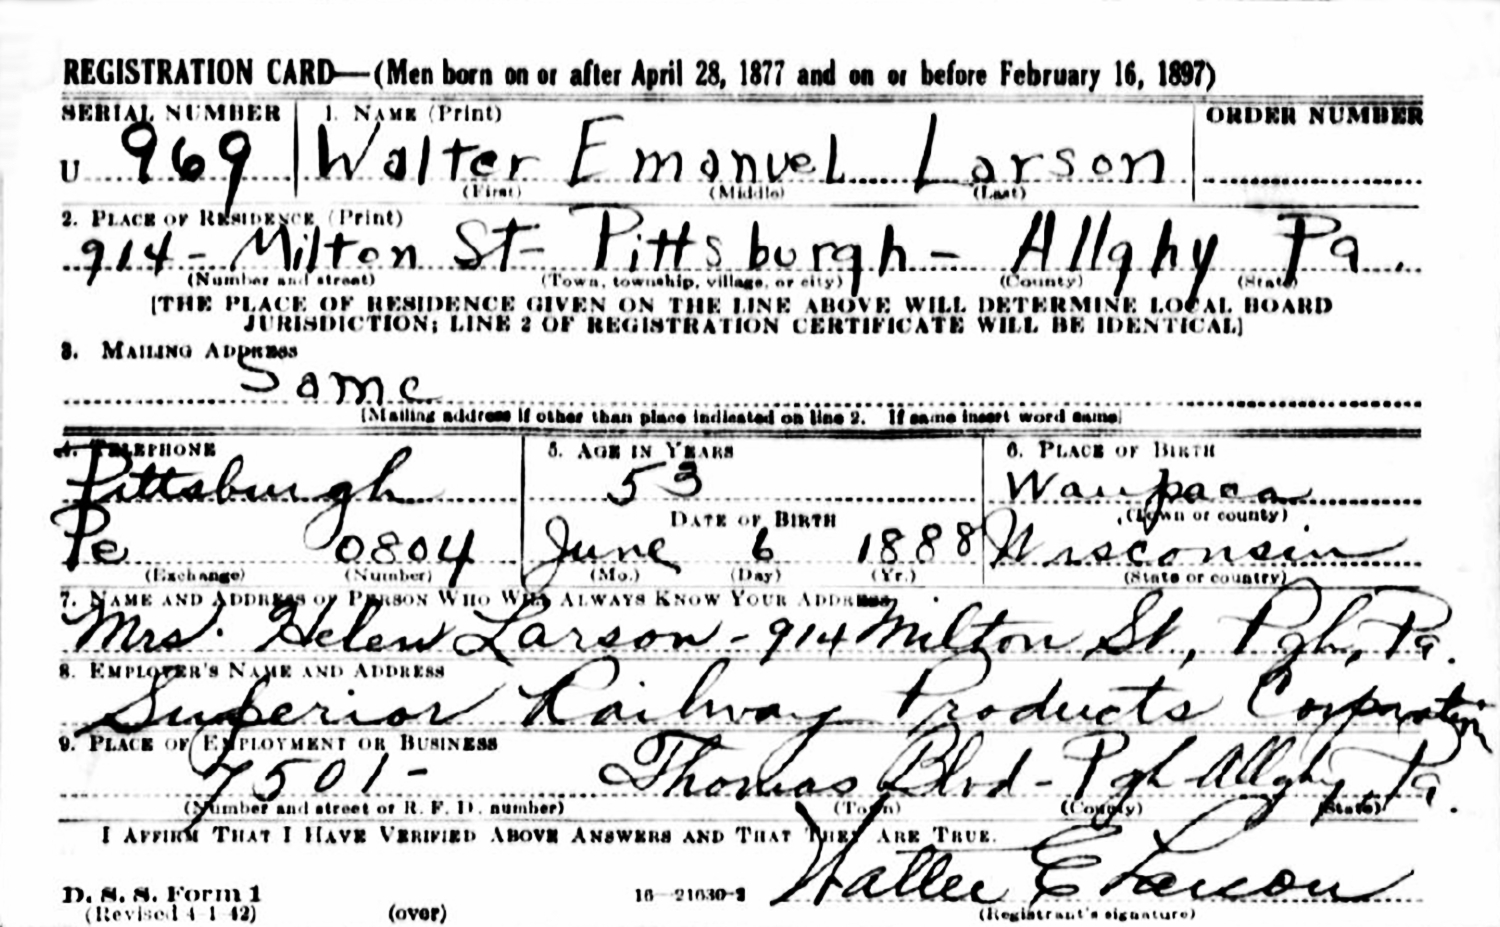 REGISTRATION CARD—(Men born on or after April 28, 1877 and on or before February 16, 1897)
SERIAL NUMBER 1. NAME (Print) ORDER NUMBER
U 969 Walter Emanuel Larson
(First) (Middle) (Last)
2. PLACE OF RESIDENCE (Print)
914 - Milton St - Pittsburgh - Allghy Pa.
(Number and street) (Town, township, village, or city) (County) (State)
[THE PLACE OF RESIDENCE GIVEN ON THE LINE ABOVE WILL DETERMINE LOCAL BOARD
JURISDICTION; LINE 2 OF REGISTRATION CERTIFICATE WILL BE IDENTICAL]
3. MAILING ADDRESS
Same
[Mailing address if other than place indicated on line 2. If same insert word same]
4. TELEPHONE 5. AGE IN YEARS 6. PLACE OF BIRTH
Pittsburgh 53 Waupaca
DATE OF BIRTH (Town or county)
Pe 0804 June 6 1888 Wisconsin
(Exchange) (Number) (Mo.) (Day) (Yr.) (State or country)
7. NAME AND ADDRESS OF PERSON WHO WILL ALWAYS KNOW YOUR ADDRESS
Mrs. Helen Larson - 914 Milton St., Pgh, Pa.
8. EMPLOYER'S NAME AND ADDRESS
Superior Railway Products Corporation
9. PLACE OF EMPLOYMENT OR BUSINESS
7501 - Thomas Blvd - Pgh Allghy Pa.
(Number and street or R. F. D. number) (Town) (County) (State)
I AFFIRM THAT I HAVE VERIFIED ABOVE ANSWERS AND THAT THEY ARE TRUE.
Walter E Larson
D. S. S. Form 1 16—21630-2
(Revised 4-1-42) (over) (Registrant's signature)